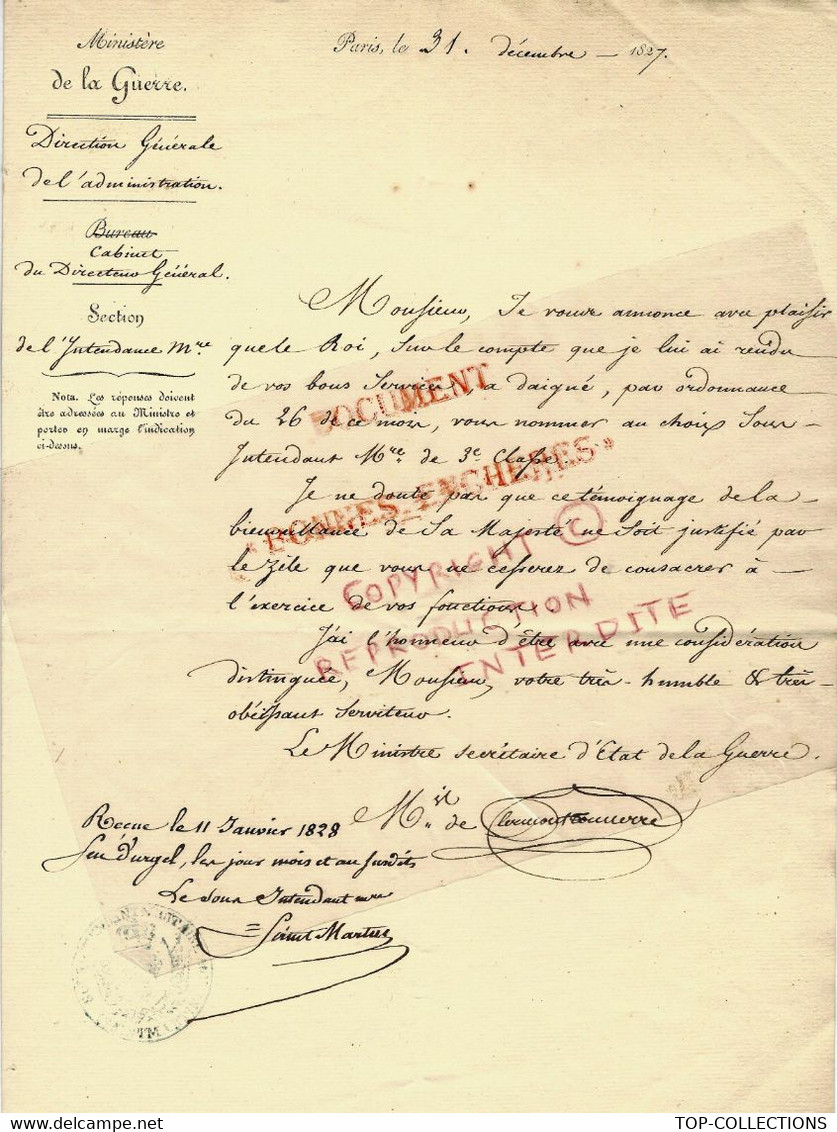 Ministère
de la Guerre.
Direction Générale
de l'administration.
Bureau
Cabinet
du Directeur Général.
Section
de l'Intendance Mre
Nota. Les réponses doivent
être adressées au Ministre et
porter en marge l'indication
ci-dessus.
Paris, le 31. décembre 1827.
Monsieur, Je vous annonce avec plaisir
que le Roi, sur le compte que je lui ai rendu
de vos bons services, a daigné, par ordonnance
du 26 de ce mois, vous nommer au choix Sous-
Intendant Mre. de 3e Classe.
Je ne doute pas que ce témoignage de la
bienveillance de Sa Majesté ne soit justifié par
le zèle que vous ne cesserez de consacrer à
l'exercice de vos fonctions.
J'ai l'honneur d'être avec une considération
distinguée, Monsieur, votre très-humble & très-
obéissant serviteur.
Le Ministre secrétaire d'Etat de la Guerre.
Mis de Clermont Tonnerre
Recue le 11 Janvier 1828
Seu d'urgel, les jour mois et an susdits
Le Sous Intendant mre
Saint Martin
DOCUMENT
"BONNES-ENCHERES"
COPYRIGHT ©
REPRODUCTION
INTERDITE
TOP-COLLECTIONS